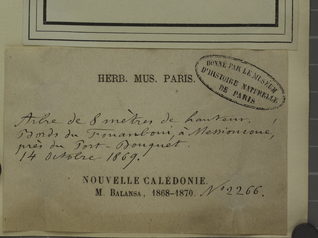 HERB. MUS. PARIS.
DONNÉ PAR LE MUSÉUM
D'HISTOIRE NATURELLE
DE PARIS
Arbre de 8 mètres de hauteur,
Bords du Touanboui, à Messioncoué,
près du Port-Bouquet.
14 Octobre 1869.
NOUVELLE CALÉDONIE.
M. BALANSA, 1868-1870. No 2266.